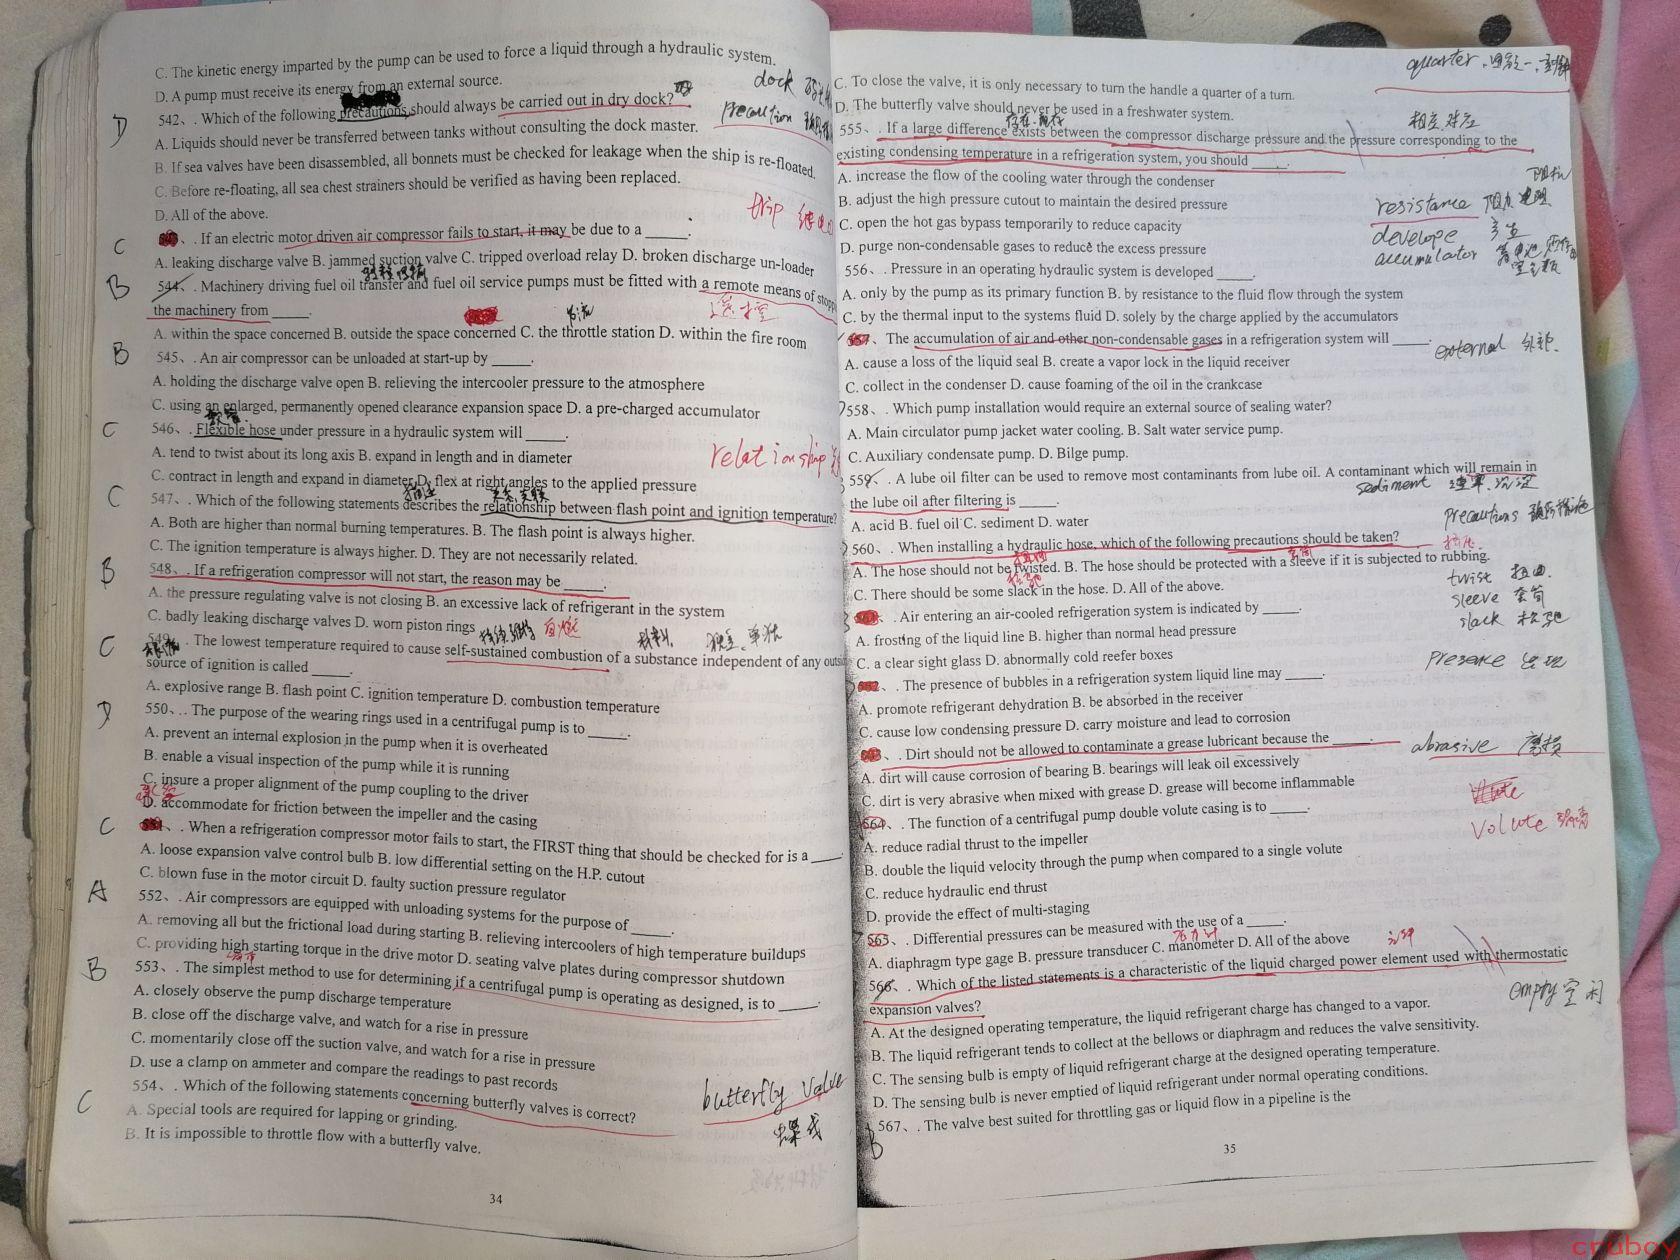 C. The kinetic energy imparted by the pump can be used to force a liquid through a hydraulic system.
D. A pump must receive its energy from an external source.
dock
D
542、. Which of the following precautions should always be carried out in dry dock?
precaution
A. Liquids should never be transferred between tanks without consulting the dock master.
B. If sea valves have been disassembled, all bonnets must be checked for leakage when the ship is re-floated.
C. Before re-floating, all sea chest strainers should be verified as having been replaced.
D. All of the above.
trip
C
543、. If an electric motor driven air compressor fails to start, it may be due to a _____.
A. leaking discharge valve B. jammed suction valve C. tripped overload relay D. broken discharge un-loader
B
544、. Machinery driving fuel oil transfer and fuel oil service pumps must be fitted with a remote means of stopp
the machinery from _____.
A. within the space concerned B. outside the space concerned C. the throttle station D. within the fire room
B
545、. An air compressor can be unloaded at start-up by _____.
A. holding the discharge valve open B. relieving the intercooler pressure to the atmosphere
C. using an enlarged, permanently opened clearance expansion space D. a pre-charged accumulator
C
546、. Flexible hose under pressure in a hydraulic system will _____.
A. tend to twist about its long axis B. expand in length and in diameter
relationship
C. contract in length and expand in diameter D. flex at right angles to the applied pressure
C
547、. Which of the following statements describes the relationship between flash point and ignition temperature?
A. Both are higher than normal burning temperatures. B. The flash point is always higher.
C. The ignition temperature is always higher. D. They are not necessarily related.
B
548、. If a refrigeration compressor will not start, the reason may be _____.
A. the pressure regulating valve is not closing B. an excessive lack of refrigerant in the system
C. badly leaking discharge valves D. worn piston rings
自燃
独立、单独
C
549、. The lowest temperature required to cause self-sustained combustion of a substance independent of any outsi
source of ignition is called _____.
A. explosive range B. flash point C. ignition temperature D. combustion temperature
D
550、.. The purpose of the wearing rings used in a centrifugal pump is to _____.
A. prevent an internal explosion in the pump when it is overheated
B. enable a visual inspection of the pump while it is running
C. insure a proper alignment of the pump coupling to the driver
D. accommodate for friction between the impeller and the casing
C
551、. When a refrigeration compressor motor fails to start, the FIRST thing that should be checked for is a _____.
A. loose expansion valve control bulb B. low differential setting on the H.P. cutout
C. blown fuse in the motor circuit D. faulty suction pressure regulator
A
552、. Air compressors are equipped with unloading systems for the purpose of _____.
A. removing all but the frictional load during starting B. relieving intercoolers of high temperature buildups
C. providing high starting torque in the drive motor D. seating valve plates during compressor shutdown
B
553、. The simplest method to use for determining if a centrifugal pump is operating as designed, is to _____.
A. closely observe the pump discharge temperature
B. close off the discharge valve, and watch for a rise in pressure
C. momentarily close off the suction valve, and watch for a rise in pressure
D. use a clamp on ammeter and compare the readings to past records
butterfly valve
C
554、. Which of the following statements concerning butterfly valves is correct?
A. Special tools are required for lapping or grinding.
B. It is impossible to throttle flow with a butterfly valve.
34
quarter
C. To close the valve, it is only necessary to turn the handle a quarter of a turn.
D. The butterfly valve should never be used in a freshwater system.
相应、对应
555、. If a large difference exists between the compressor discharge pressure and the pressure corresponding to the
existing condensing temperature in a refrigeration system, you should _____.
A. increase the flow of the cooling water through the condenser
B. adjust the high pressure cutout to maintain the desired pressure
resistance 阻力
C. open the hot gas bypass temporarily to reduce capacity
develope 产生
D. purge non-condensable gases to reduce the excess pressure
accumulator 蓄电池
556、. Pressure in an operating hydraulic system is developed _____.
A. only by the pump as its primary function B. by resistance to the fluid flow through the system
C. by the thermal input to the systems fluid D. solely by the charge applied by the accumulators
557、 The accumulation of air and other non-condensable gases in a refrigeration system will _____.
external 外部
A. cause a loss of the liquid seal B. create a vapor lock in the liquid receiver
C. collect in the condenser D. cause foaming of the oil in the crankcase
558、. Which pump installation would require an external source of sealing water?
A. Main circulator pump jacket water cooling. B. Salt water service pump.
C. Auxiliary condensate pump. D. Bilge pump.
559、. A lube oil filter can be used to remove most contaminants from lube oil. A contaminant which will remain in
sediment 沉淀
the lube oil after filtering is _____.
A. acid B. fuel oil C. sediment D. water
precautions 预防措施
560、. When installing a hydraulic hose, which of the following precautions should be taken?
A. The hose should not be twisted. B. The hose should be protected with a sleeve if it is subjected to rubbing.
twist 扭曲
C. There should be some slack in the hose. D. All of the above.
sleeve 套筒
561、. Air entering an air-cooled refrigeration system is indicated by _____.
slack 松弛
A. frosting of the liquid line B. higher than normal head pressure
C. a clear sight glass D. abnormally cold reefer boxes
presence 出现
562、. The presence of bubbles in a refrigeration system liquid line may _____.
A. promote refrigerant dehydration B. be absorbed in the receiver
C. cause low condensing pressure D. carry moisture and lead to corrosion
563、. Dirt should not be allowed to contaminate a grease lubricant because the _____.
abrasive 磨损
A. dirt will cause corrosion of bearing B. bearings will leak oil excessively
C. dirt is very abrasive when mixed with grease D. grease will become inflammable
564、. The function of a centrifugal pump double volute casing is to _____.
volute
A. reduce radial thrust to the impeller
B. double the liquid velocity through the pump when compared to a single volute
C. reduce hydraulic end thrust
D. provide the effect of multi-staging
565、. Differential pressures can be measured with the use of a _____.
压力计
A. diaphragm type gage B. pressure transducer C. manometer D. All of the above
566、. Which of the listed statements is a characteristic of the liquid charged power element used with thermostatic
expansion valves?
empty 空
A. At the designed operating temperature, the liquid refrigerant charge has changed to a vapor.
B. The liquid refrigerant tends to collect at the bellows or diaphragm and reduces the valve sensitivity.
C. The sensing bulb is empty of liquid refrigerant charge at the designed operating temperature.
D. The sensing bulb is never emptied of liquid refrigerant under normal operating conditions.
567、. The valve best suited for throttling gas or liquid flow in a pipeline is the
B
35
cruboy